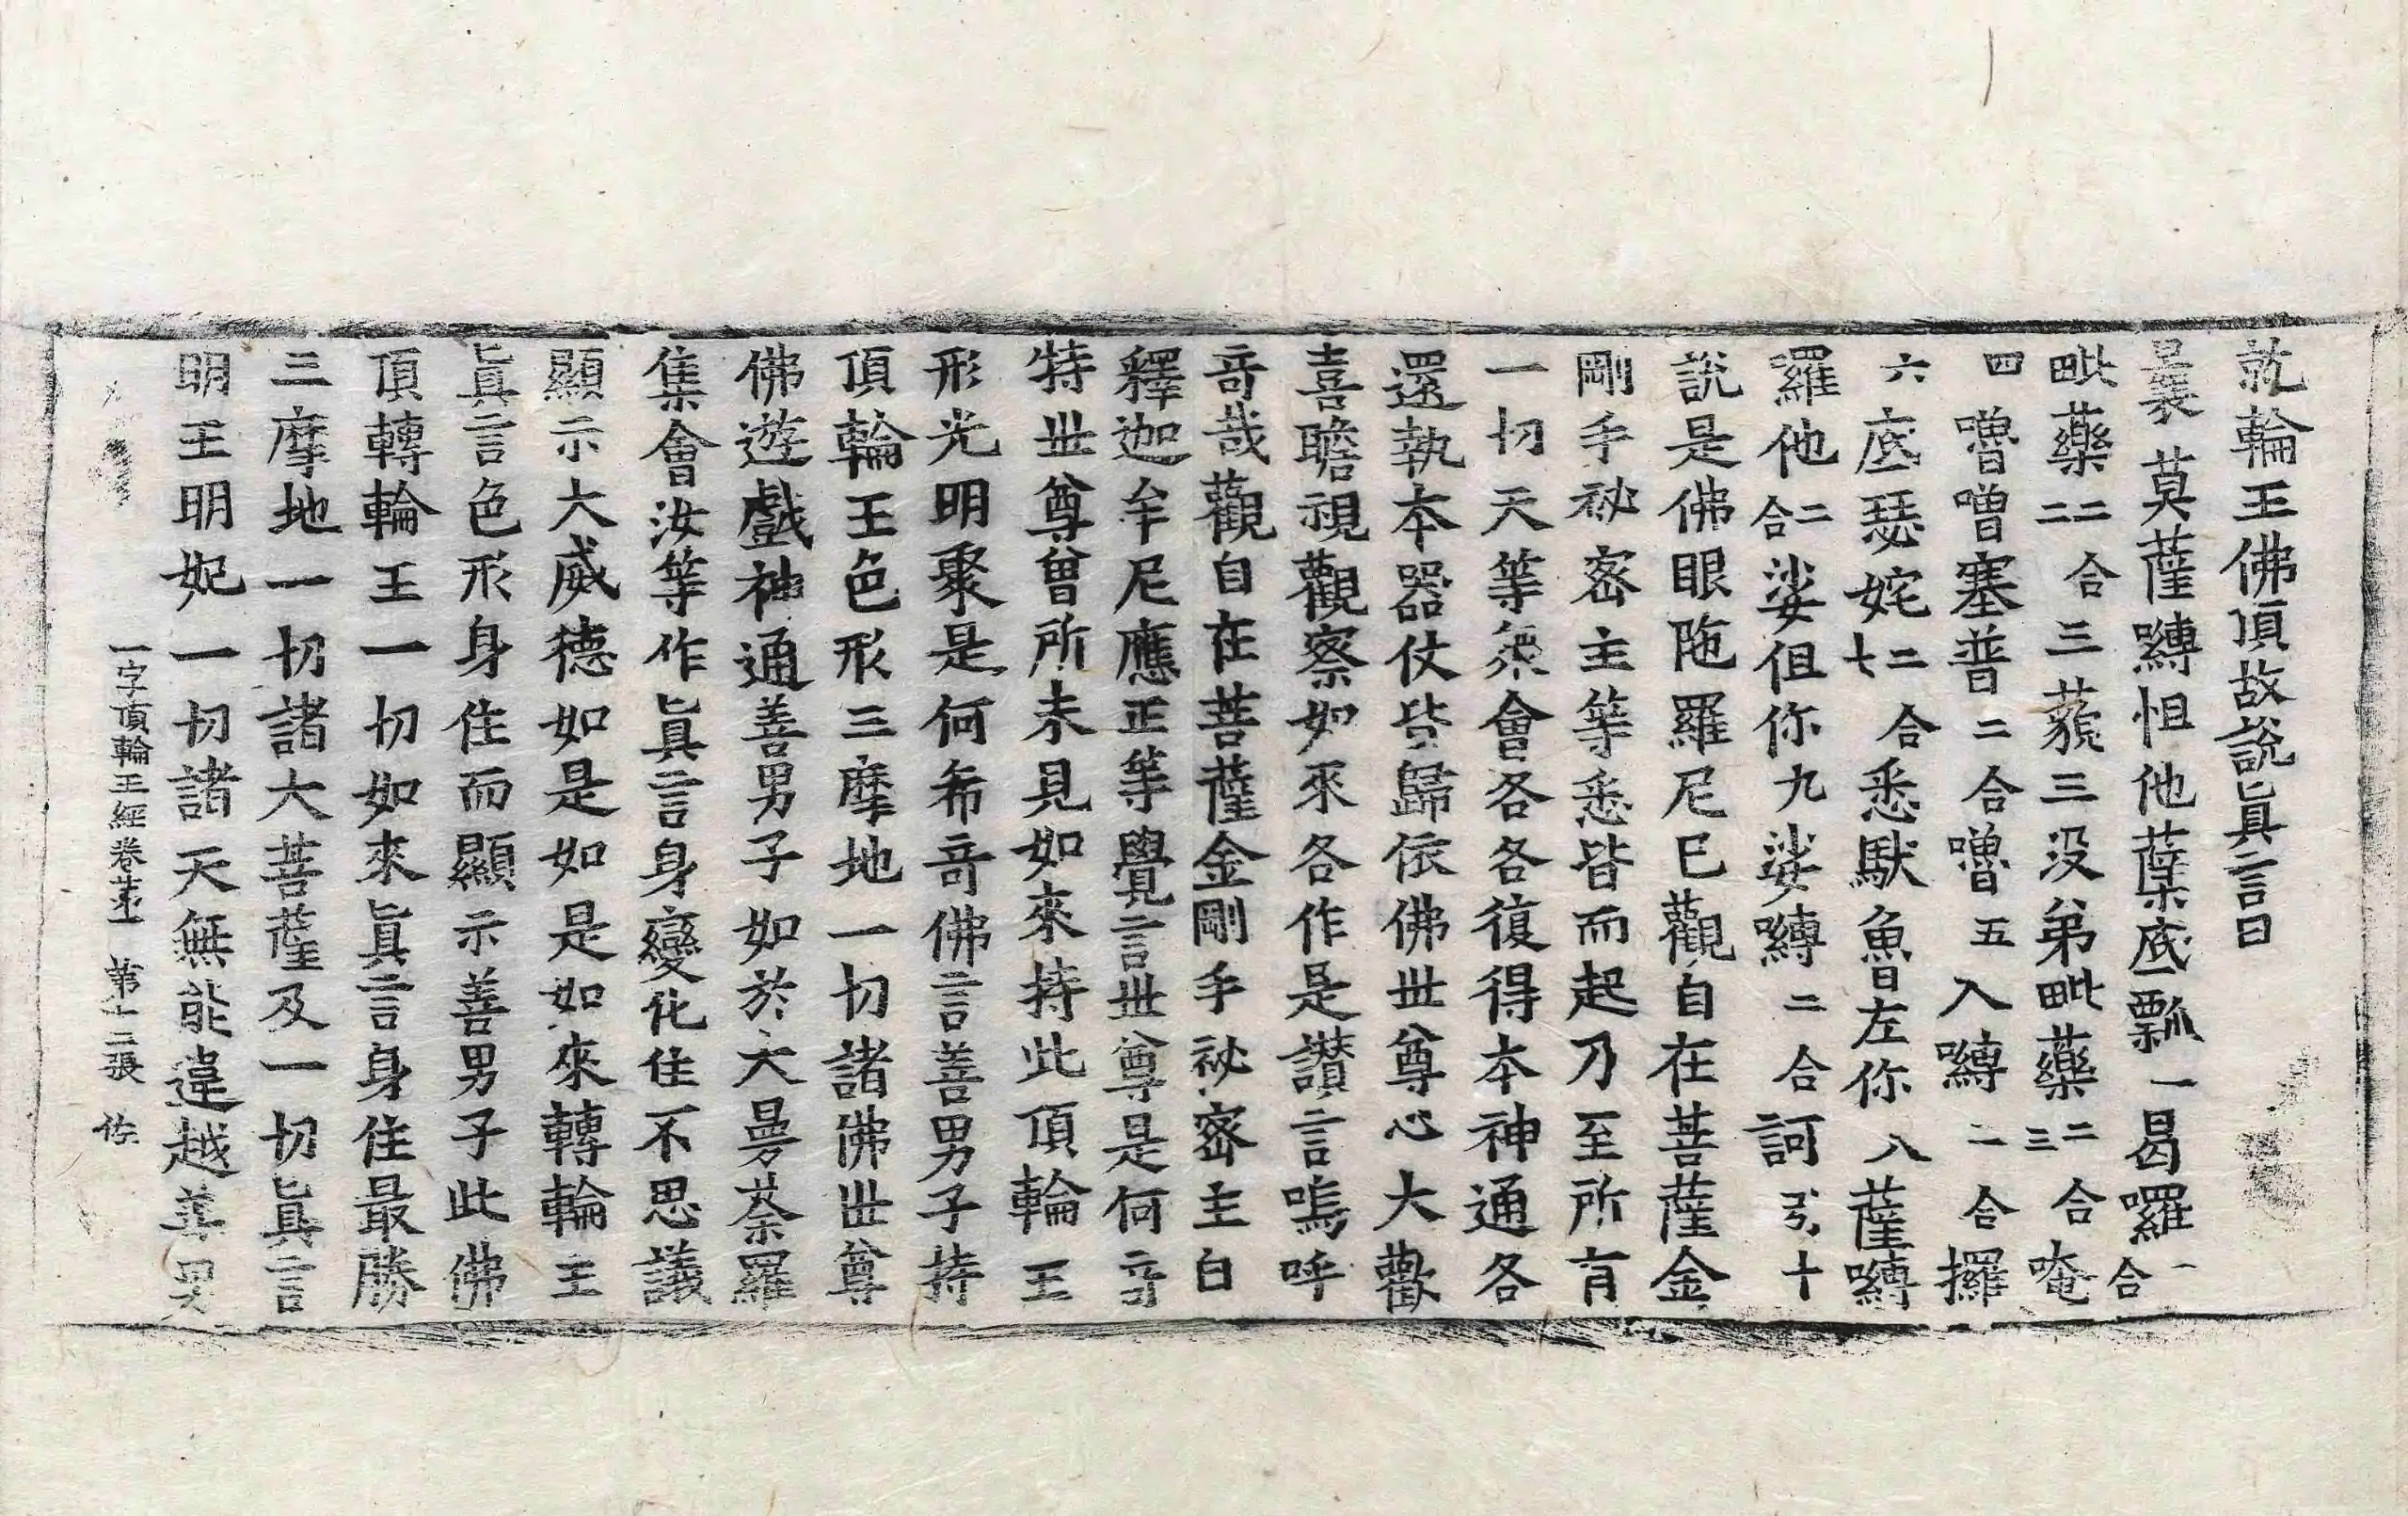 就輪王佛頂故說眞言曰
曩莫薩嚩怛他蘖底瓢一曷囉二合
毗藥二二合三藐三没弟毗藥三二合唵
四嚕嚕塞普二合嚕五入嚩二合攞
六底瑟姹七二合悉馱魯左你八薩嚩
羅他二合娑伹你九娑嚩二合訶引十
說是佛眼陁羅尼已觀自在菩薩金
剛手祕密主等悉皆而起乃至所有
一切天等衆會各各復得本神通各
還執本器仗皆歸依佛世尊心大歡
喜瞻視觀察如來各作是讃言嗚呼
竒哉觀自在菩薩金剛手祕密主白
釋迦牟尼應正等覺言世尊是何竒
特世尊曾所未見如來持此頂輪王
形光明聚是何希竒佛言善男子持
頂輪王色形三摩地一切諸佛世尊
佛遊戲神通善男子如於大曼茶羅
集會汝等作眞言身變化住不思議
顯示大威德如是如是如來轉輪王
眞言色形身住而顯示善男子此佛
頂轉輪王一切如來眞言身住最勝
三摩地一切諸大菩薩及一切眞言
明王明妃一切諸天無能違越善男
一字頂輪王經卷第一 第十二張 佐